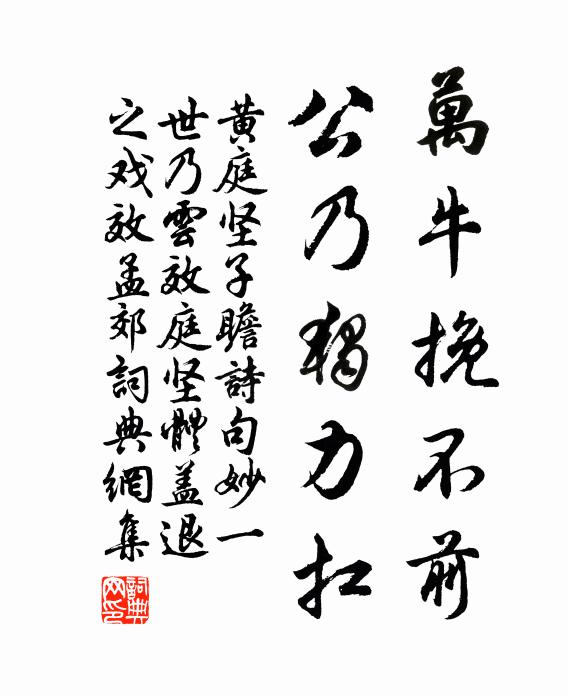 萬牛挽不前
公乃獨力扛
黃庭坚子瞻詩句妙一
世乃雲效庭坚體盖退
之戏效孟郊詞典網集
詞典網印